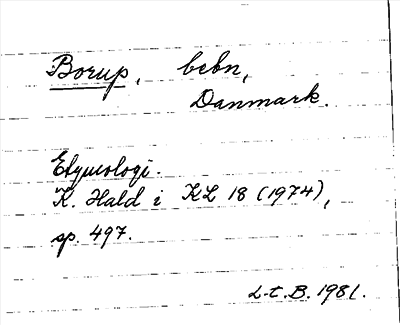 Borup, bebn,
Danmark.
Etymologi.
K. Hald i KL 18 (1974),
sp. 497.
L-t. B. 1981.